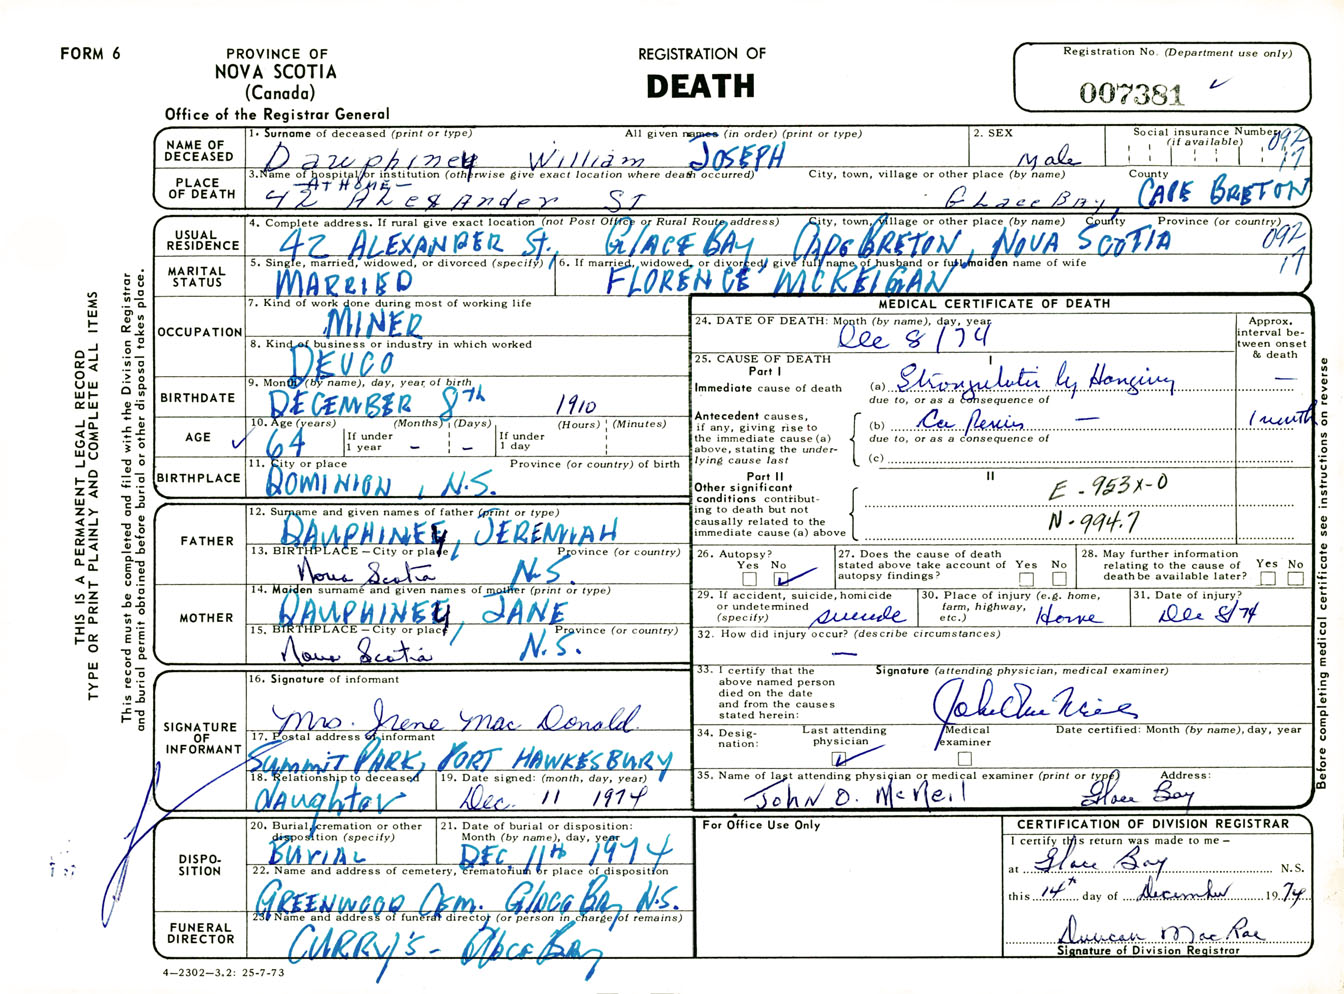 FORM 6
PROVINCE OF
NOVA SCOTIA
(Canada)
Office of the Registrar General
REGISTRATION OF
DEATH
Registration No. (Department use only)
007381
NAME OF DECEASED
1. Surname of deceased (print or type) All given names (in order) (print or type)
Dauphiney William JOSEPH
2. SEX
Male
Social insurance Number (if available)
092
17
PLACE OF DEATH
3. Name of hospital or institution (otherwise give exact location where death occurred) City, town, village or other place (by name) County
- AT HOME -
42 Alexander ST Glace Bay, CAPE BRETON
USUAL RESIDENCE
4. Complete address. If rural give exact location (not Post Office or Rural Route address) City, town, village or other place (by name) County Province (or country)
42 ALEXANDER St., GLACE BAY CAPE BRETON, NOVA SCOTIA
092
17
MARITAL STATUS
5. Single, married, widowed, or divorced (specify)
MARRIED
6. If married, widowed, or divorced, give full name of husband or full maiden name of wife
FLORENCE McKEIGAN
OCCUPATION
7. Kind of work done during most of working life
MINER
8. Kind of business or industry in which worked
DEVCO
BIRTHDATE
9. Month (by name), day, year of birth
DECEMBER 8TH 1910
AGE
10. Age (years) (Months) (Days) (Hours) (Minutes)
64 If under 1 year - - If under 1 day
BIRTHPLACE
11. City or place Province (or country) of birth
DOMINION, N.S.
FATHER
12. Surname and given names of father (print or type)
DAUPHINEY, JEREMIAH
13. BIRTHPLACE – City or place Province (or country)
Nova Scotia N.S.
MOTHER
14. Maiden surname and given names of mother (print or type)
DAUPHINEY, JANE
15. BIRTHPLACE – City or place Province (or country)
Nova Scotia N.S.
SIGNATURE OF INFORMANT
16. Signature of informant
Mrs. Irene Mac Donald
17. Postal address of informant
Summit PARK, PORT HAWKESBURY
18. Relationship to deceased
daughter
19. Date signed: (month, day, year)
Dec. 11 1974
DISPO-SITION
20. Burial, cremation or other disposition (specify)
BURIAL
21. Date of burial or disposition: Month (by name), day, year
DEC, 11th 1974
22. Name and address of cemetery, crematorium or place of disposition
GREENWOOD Cem. Glace Bay N.S.
FUNERAL DIRECTOR
23. Name and address of funeral director (or person in charge of remains)
CURRY'S - Glace Bay
MEDICAL CERTIFICATE OF DEATH
24. DATE OF DEATH: Month (by name), day, year
Dec 8/74
Approx. interval between onset & death
25. CAUSE OF DEATH
Part I
I
Immediate cause of death
(a) Strangulation by Hanging —
due to, or as a consequence of
Antecedent causes, if any, giving rise to the immediate cause (a) above, stating the underlying cause last
(b) Ca Penis — 1 month
due to, or as a consequence of
(c)
Part II
II
Other significant conditions contributing to death but not causally related to the immediate cause (a) above
E - 953X-0
N - 994.7
26. Autopsy?
Yes No
27. Does the cause of death stated above take account of autopsy findings?
Yes No
28. May further information relating to the cause of death be available later?
Yes No
29. If accident, suicide, homicide or undetermined (specify)
suicide
30. Place of injury (e.g. home, farm, highway, etc.)
Home
31. Date of injury?
Dec 8/74
32. How did injury occur? (describe circumstances)
—
33. I certify that the above named person died on the date and from the causes stated herein:
Signature (attending physician, medical examiner)
34. Designation:
Last attending physician
Medical examiner
Date certified: Month (by name), day, year
35. Name of last attending physician or medical examiner (print or type) Address:
John D. McNeil Glace Bay
For Office Use Only
CERTIFICATION OF DIVISION REGISTRAR
I certify this return was made to me –
at Glace Bay N.S.
this 14th day of December 1974
Duncan MacRae
Signature of Division Registrar
4–2302–3.2: 25-7-73
THIS IS A PERMANENT LEGAL RECORD
TYPE OR PRINT PLAINLY AND COMPLETE ALL ITEMS
This record must be completed and filed with the Division Registrar
and burial permit obtained before burial or other disposal takes place.
Before completing medical certificate see instructions on reverse